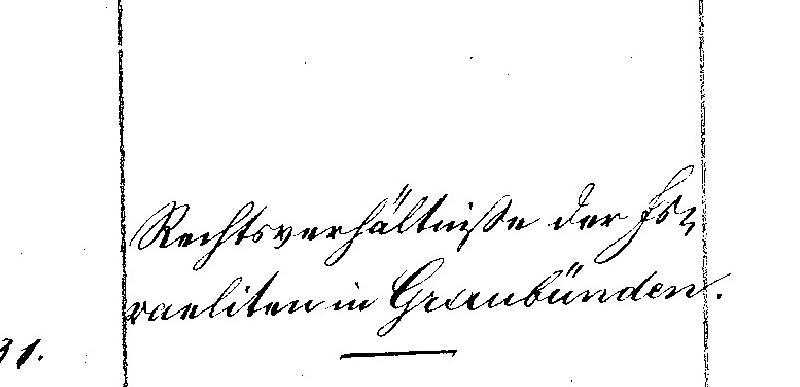 Rechtsverhältniße der Is-
raeliten in Graubünden.
31.